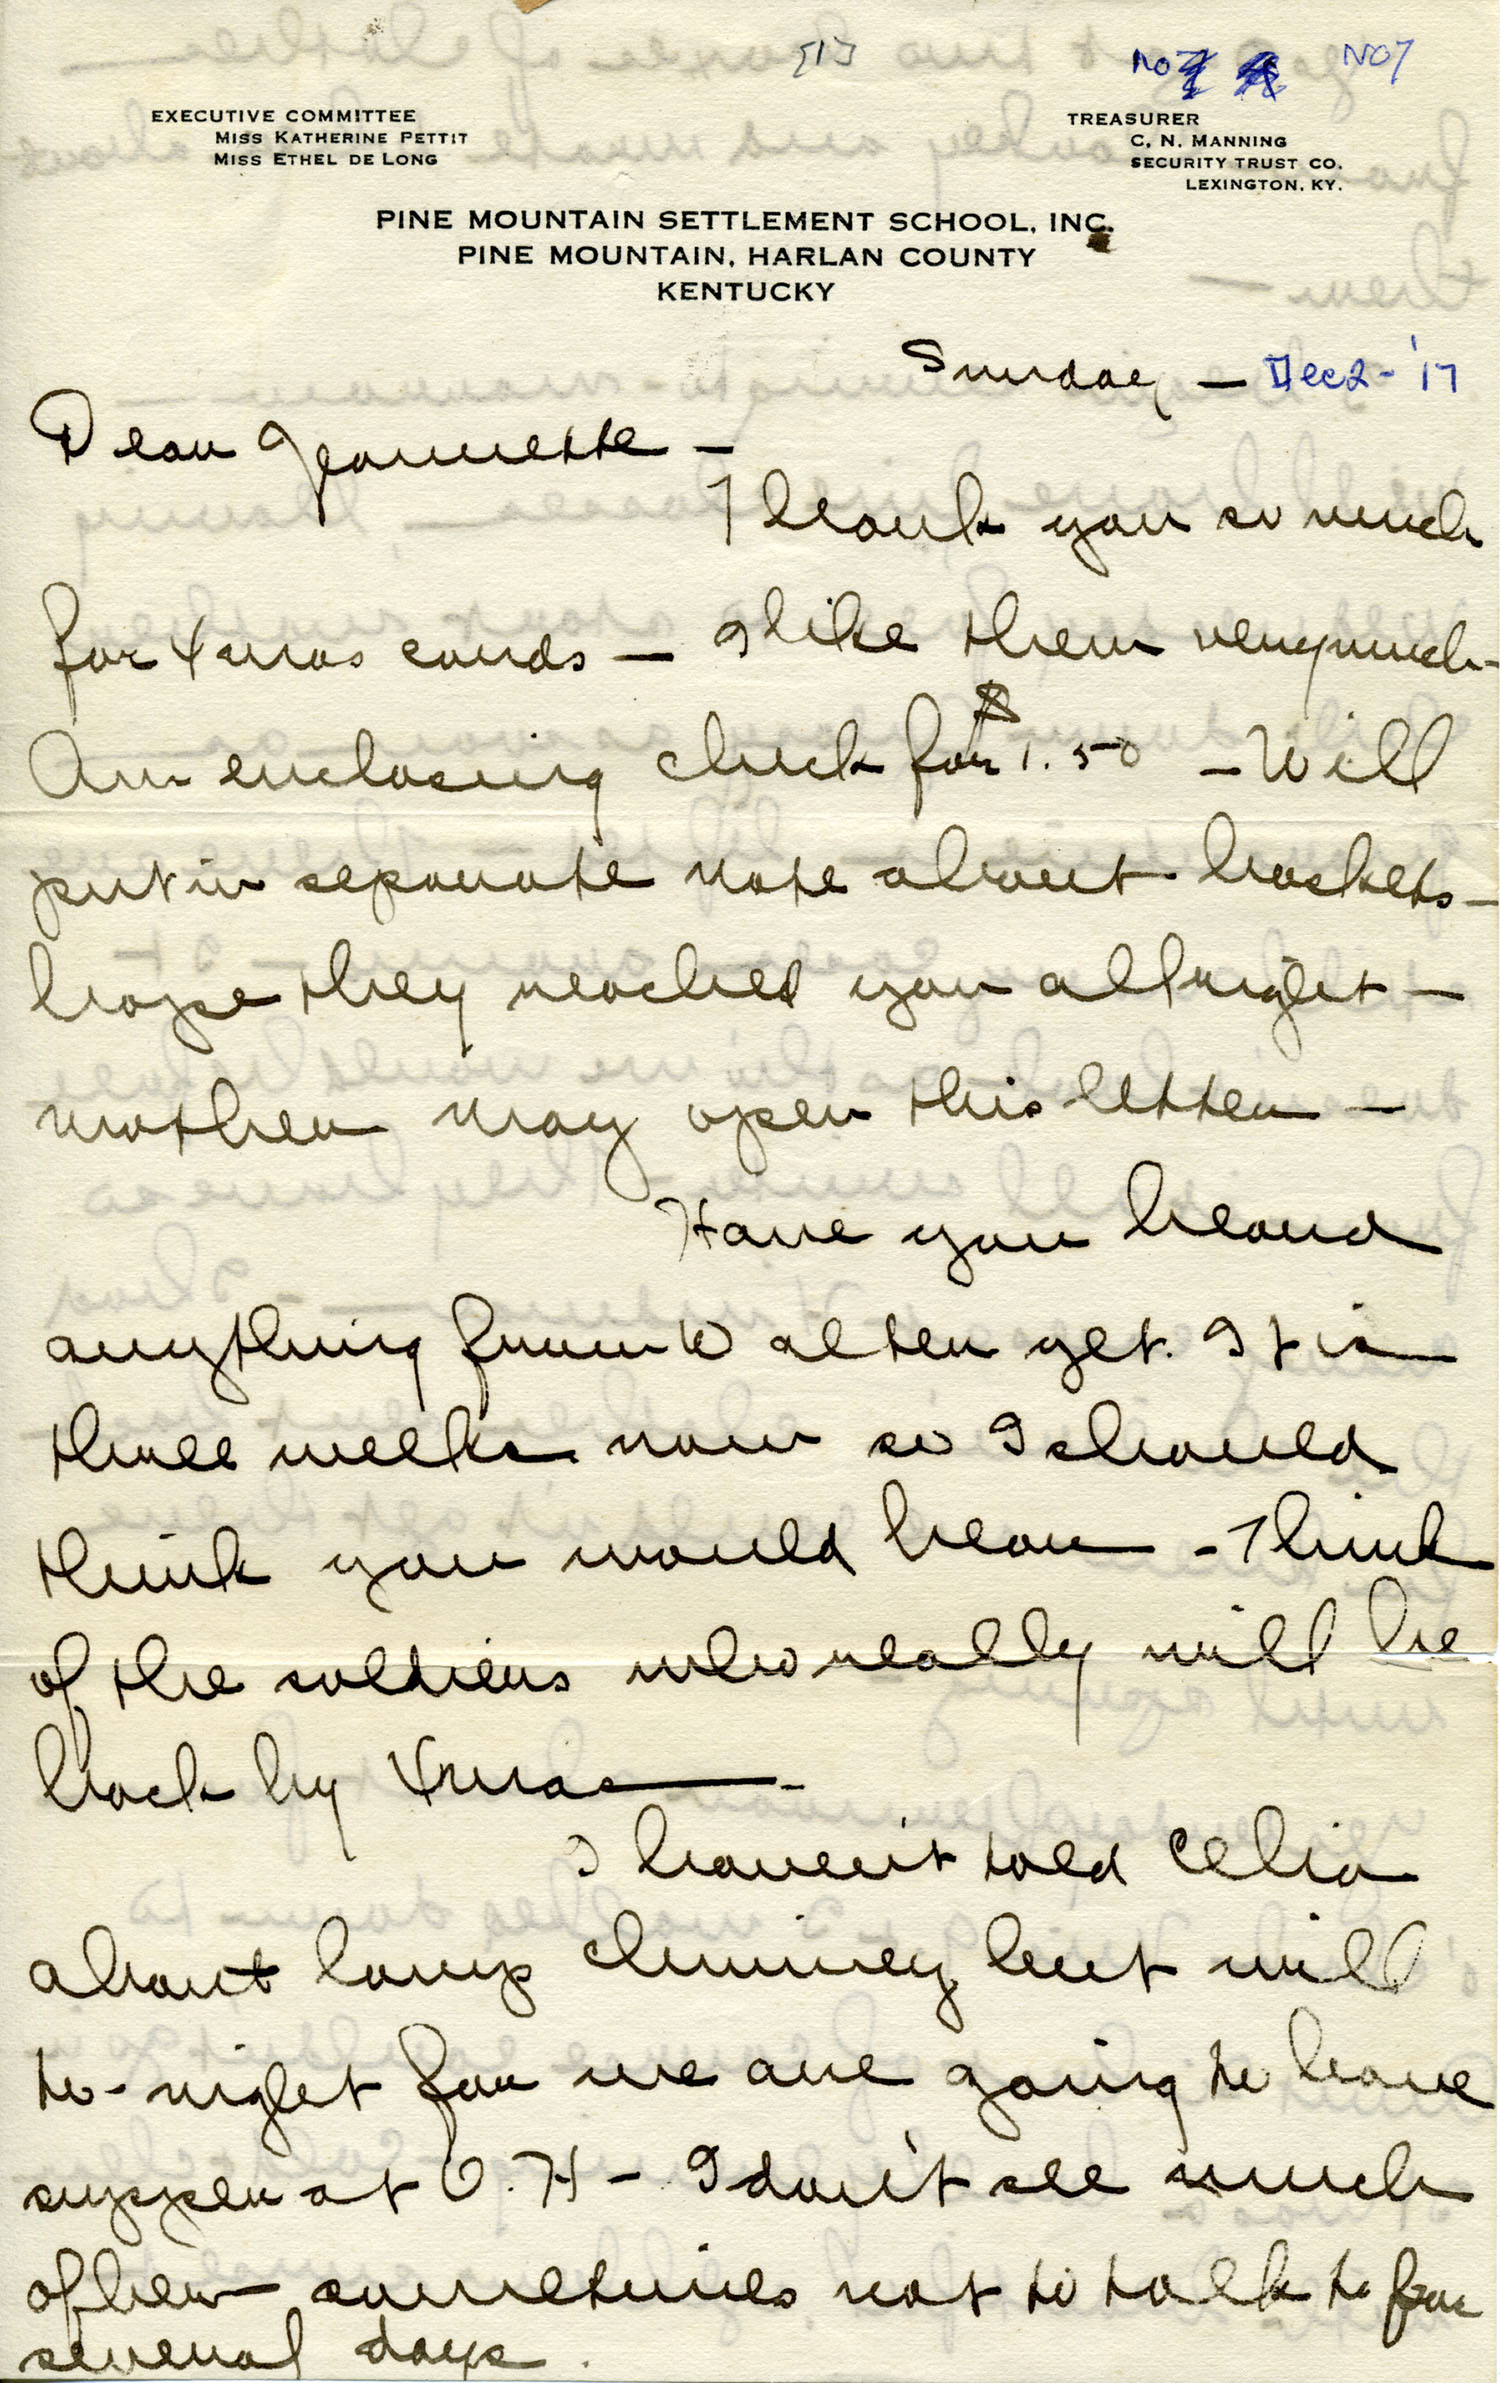 [1] No 7 NO7
EXECUTIVE COMMITTEE
MISS KATHERINE PETTIT
MISS ETHEL DE LONG
TREASURER
C. N. MANNING
SECURITY TRUST CO.
LEXINGTON, KY.
PINE MOUNTAIN SETTLEMENT SCHOOL, INC.
PINE MOUNTAIN, HARLAN COUNTY
KENTUCKY
Sunday — Dec 2 - '17
Dear Jeannette —
Thank you so much
for Xmas cards — I like them very much -
Am enclosing check for $1.50 — Will
put in separate note about baskets —
hope they reached you all right —
mother may open this letter —
Have you heard
anything from Walter yet. It is
three weeks now so I should
think you would hear - Think
of the soldiers who really will be
back by Xmas —
I haven't told Celia
about lamp chimney but will
to-night for we are going to have
supper at O. H - I don't see much
of her — sometimes not to talk to for
several days.